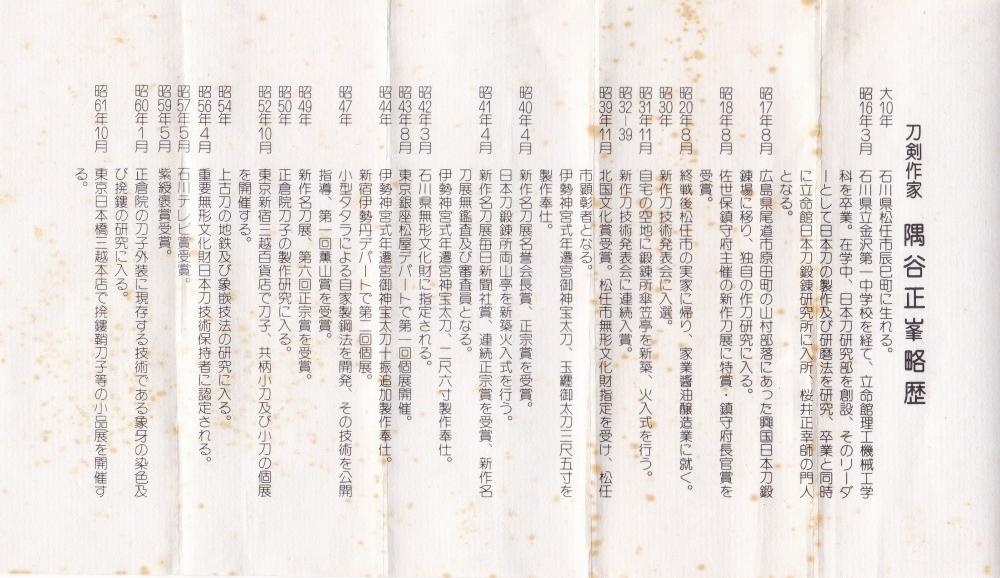 刀剣作家 隅谷正峯略歴
大10年 石川県松任市辰巳町に生れる。
昭16年3月 石川県立金沢第一中学校を経て、立命館理工機械工学
科を卒業。在学中、日本刀研究部を創設、そのリーダ
ーとして日本刀の製作及び研磨法を研究、卒業と同時
に立命館日本刀鍛錬研究所に入所、桜井正幸師の門人
となる。
昭17年8月 広島県尾道市原田町の山村部落にあった興国日本刀鍛
錬場に移り、独自の作刀研究に入る。
昭18年8月 佐世保鎮守府主催の新作刀展に特賞・鎮守府長官賞を
受賞。
昭20年8月 終戦後松任市の実家に帰り、家業醬油醸造業に就く。
昭30年 新作刀技術発表会に入選。
昭31年11月 自宅の空地に鍛錬所傘笠亭を新築、火入式を行う。
昭32―39 新作刀技術発表会に連続入賞。
昭39年11月 北国文化賞受賞。松任市無形文化財指定を受け、松任
市顕彰者となる。
伊勢神宮式年遷宮御神宝太刀、玉纒御太刀三尺五寸を
製作奉仕。
昭40年4月 新作名刀展名誉会長賞、正宗賞を受賞。
日本刀鍛錬所両山亭を新築火入式を行う。
昭41年4月 新作名刀展毎日新聞社賞、連続正宗賞を受賞、新作名
刀展無鑑査及び審査員となる。
伊勢神宮式年遷宮御神宝太刀、二尺六寸製作奉仕。
昭42年3月 石川県無形文化財に指定される。
昭43年8月 東京銀座松屋デパートで第一回個展開催。
昭44年 伊勢神宮式年遷宮御神宝太刀十振追加製作奉仕。
新宿伊勢丹デパートで第二回個展。
昭47年 小型タタラによる自家製鋼法を開発、その技術を公開
指導、第一回薫山賞を受賞。
昭49年 新作名刀展、第六回正宗賞を受賞。
昭50年 正倉院刀子の製作研究に入る。
昭52年10月 東京新宿三越百貨店で刀子、共柄小刀及び小刀の個展
を開催する。
昭54年 上古刀の地鉄及び象嵌技法の研究に入る。
昭56年4月 重要無形文化財日本刀技術保持者に認定される。
昭57年5月 石川テレビ賞受賞。
昭59年5月 紫綬褒賞受賞。
昭60年1月 正倉院の刀子外装に現存する技術である象牙の染色及
び撥鏤の研究に入る。
昭61年10月 東京日本橋三越本店で撥鏤鞘刀子等の小品展を開催す
る。